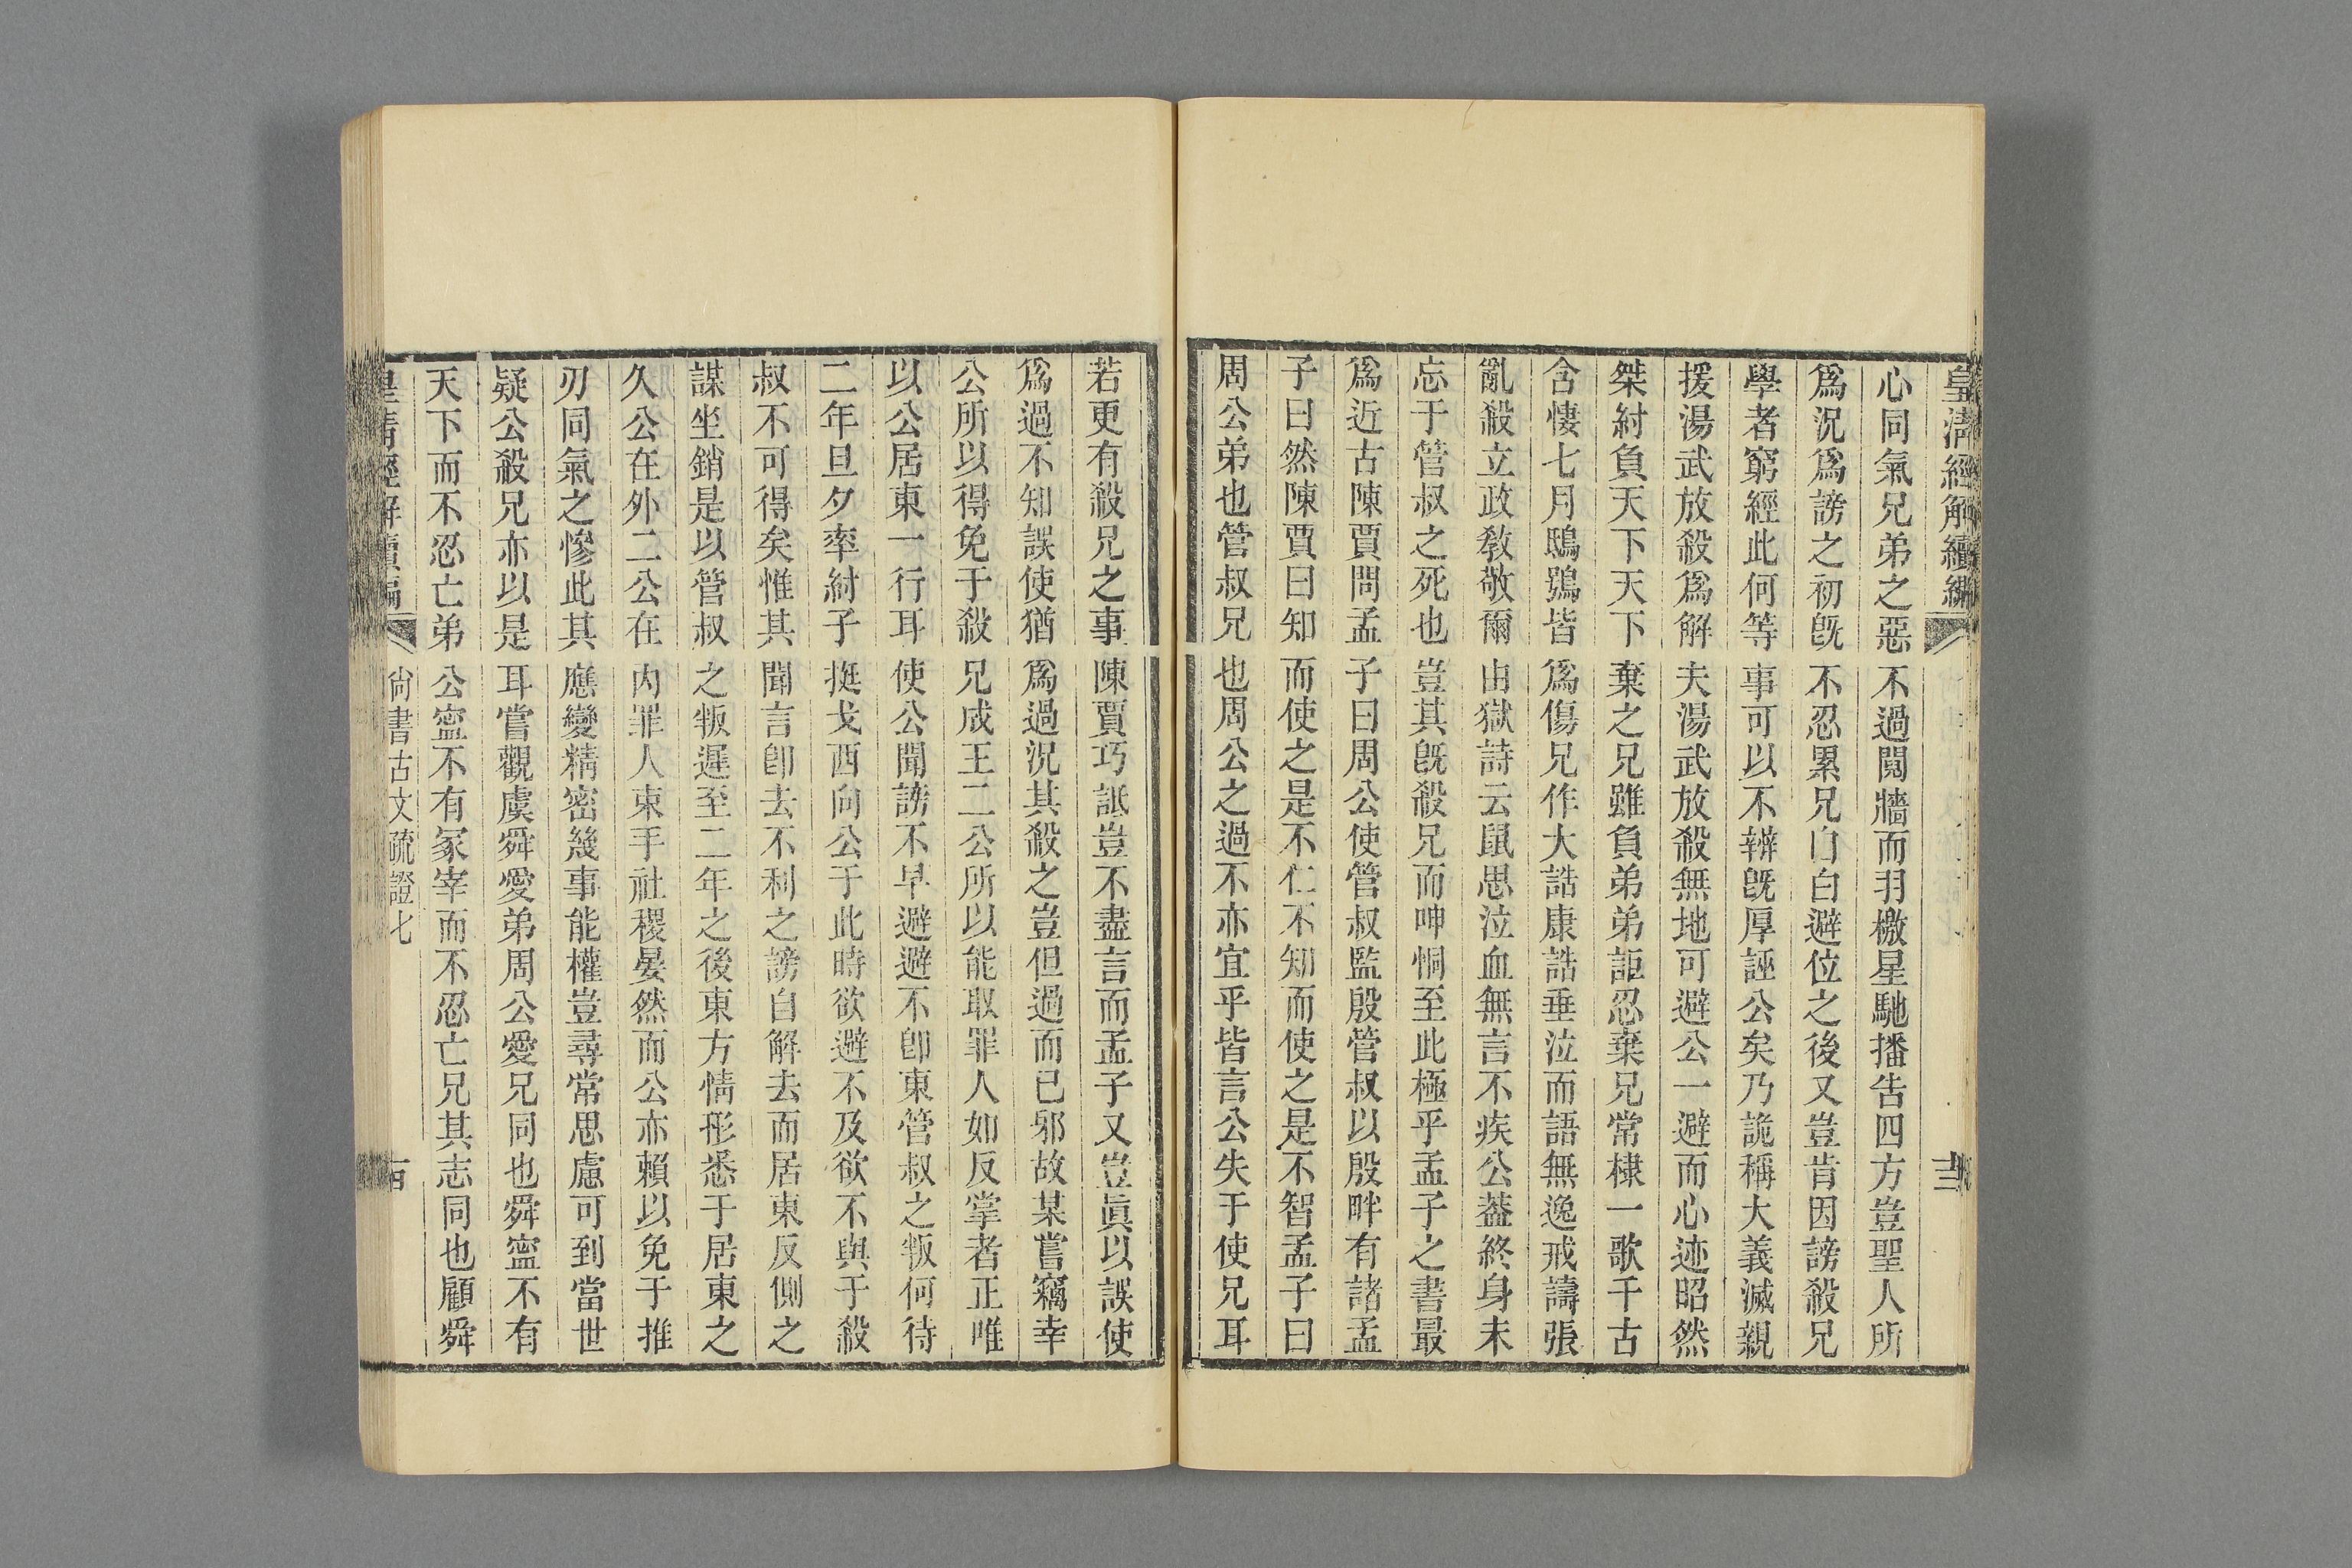 皇清經解續編
三
心同氣兄弟之惡不過鬩牆而羽檄星馳播告四方豈聖人所
爲況爲謗之初旣不忍累兄自白避位之後又豈肯因謗殺兄
學者窮經此何等事可以不辨旣厚誣公矣乃詭稱大義滅親
援湯武放殺爲解夫湯武放殺無地可避公一避而心迹昭然
桀紂負天下天下棄之兄雖負弟弟詎忍棄兄常棣一歌千古
含悽七月鴟鴞皆爲傷兄作大誥康誥垂泣而語無逸戒譸張
亂殺立政敎敬爾由獄詩云鼠思泣血無言不疾公葢終身未
忘于管叔之死也豈其旣殺兄而呻恫至此極乎孟子之書最
爲近古陳賈問孟子曰周公使管叔監殷管叔以殷畔有諸孟
子曰然陳賈曰知而使之是不仁不知而使之是不智孟子曰
周公弟也管叔兄也周公之過不亦宜乎皆言公失于使兄耳
若更有殺兄之事陳賈巧詆豈不盡言而孟子又豈眞以誤使
爲過不知誤使猶爲過況其殺之豈但過而已邪故某嘗竊幸
公所以得免于殺兄成王二公所以能取罪人如反掌者正唯
以公居東一行耳使公聞謗不早避避不卽東管叔之叛何待
二年旦夕率紂子挺戈西向公于此時欲避不及欲不與于殺
叔不可得矣惟其聞言卽去不利之謗自解去而居東反側之
謀坐銷是以管叔之叛遲至二年之後東方情形悉于居東之
久公在外二公在內罪人束手社稷晏然而公亦賴以免于推
刃同氣之慘此其應變精密幾事能權豈尋常思慮可到當世
疑公殺兄亦以是耳嘗觀虞舜愛弟周公愛兄同也舜寍不有
天下而不忍亡弟公寍不有冢宰而不忍亡兄其志同也顧舜
皇清經解續編
尙書古文疏證七